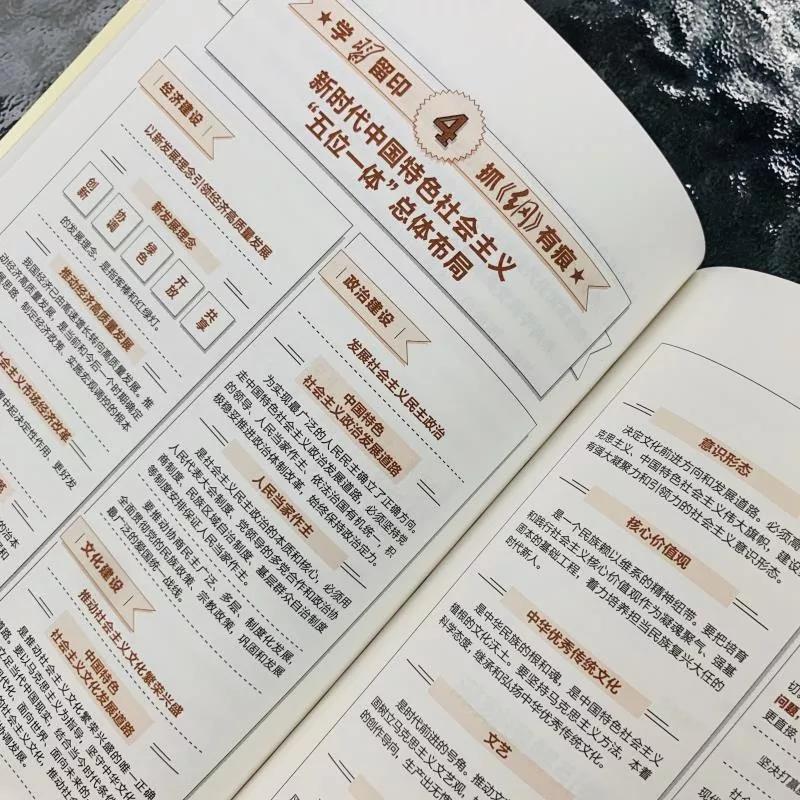 学习留印
4
抓《纲》有痕
新时代中国特色社会主义
“五位一体”总体布局
经济建设
以新发展理念引领经济高质量发展
新发展理念
创新
协调
绿色
开放
共享
的发展理念，是指挥棒和红绿灯。
推动经济高质量发展
我国经济已由高速增长转向高质量发展。推
动经济高质量发展，是当前和今后一个时期确定
展思路、制定经济政策、实施宏观调控的根本
社会主义市场经济改革
置中起决定性作用，更好发
政治建设
发展社会主义民主政治
中国特色
社会主义政治发展道路
为实现最广泛的人民民主确立了正确方向。
走中国特色社会主义政治发展道路，必须坚持党
的领导、人民当家作主、依法治国有机统一，积
极稳妥推进政治体制改革，始终保持政治定力。
人民当家作主
是社会主义民主政治的本质和核心，必须用
人民代表大会制度、党领导的多党合作和政治协
商制度、民族区域自治制度、基层群众自治制度
等制度安排保证人民当家作主。
要推动协商民主广泛、多层、制度化发展，
全面贯彻党的民族政策、宗教政策，巩固和发展
最广泛的爱国统一战线。
文化建设
推动社会主义文化繁荣兴盛
中国特色
社会主义文化发展道路
是推动社会主义文化繁荣兴盛的唯一正确
道路。要以马克思主义为指导，坚守中华文化
立足当代中国现实，结合当今时代条件
代化、面向世界、面向未来的
意识形态
决定文化前进方向和发展道路。必须高
克思主义、中国特色社会主义伟大旗帜，建设
有强大凝聚力和引领力的社会主义意识形态。
核心价值观
是一个民族赖以维系的精神纽带。要把培育
和践行社会主义核心价值观作为凝魂聚气、强基
固本的基础工程，着力培养担当民族复兴大任的
时代新人。
中华优秀传统文化
是中华民族的根和魂，是中国特色社会主义
植根的文化沃土。要坚持马克思主义方法，本着
科学态度，继承和弘扬中华优秀传统文化。
文艺
是时代前进的号角。推动文
固树立马克思主义文艺观，
的创作导向，生产出无愧
问题，
更直接、
坚决打赢